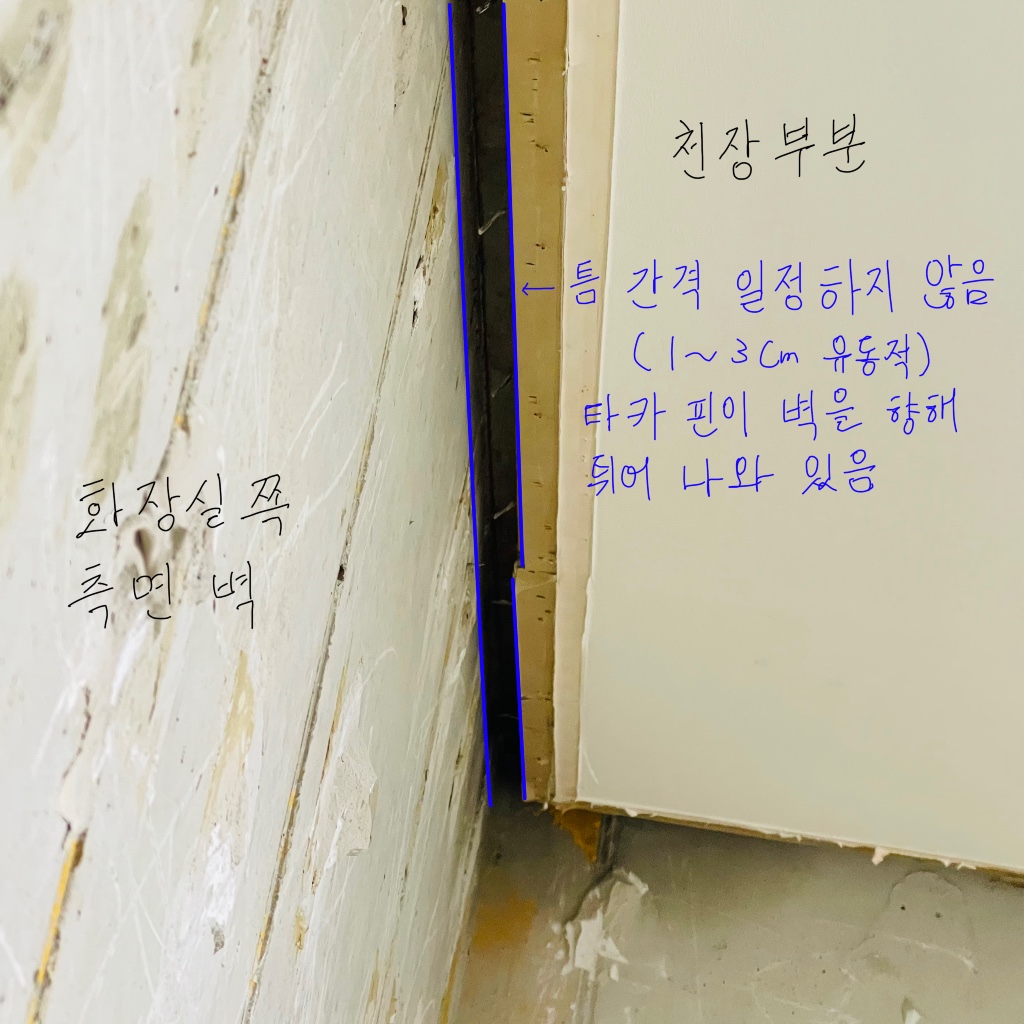 천장부분
← 틈 간격 일정하지 않음
(1~3cm 유동적)
타카 핀이 벽을 향해
튀어 나와 있음
화장실 쪽
측면 벽